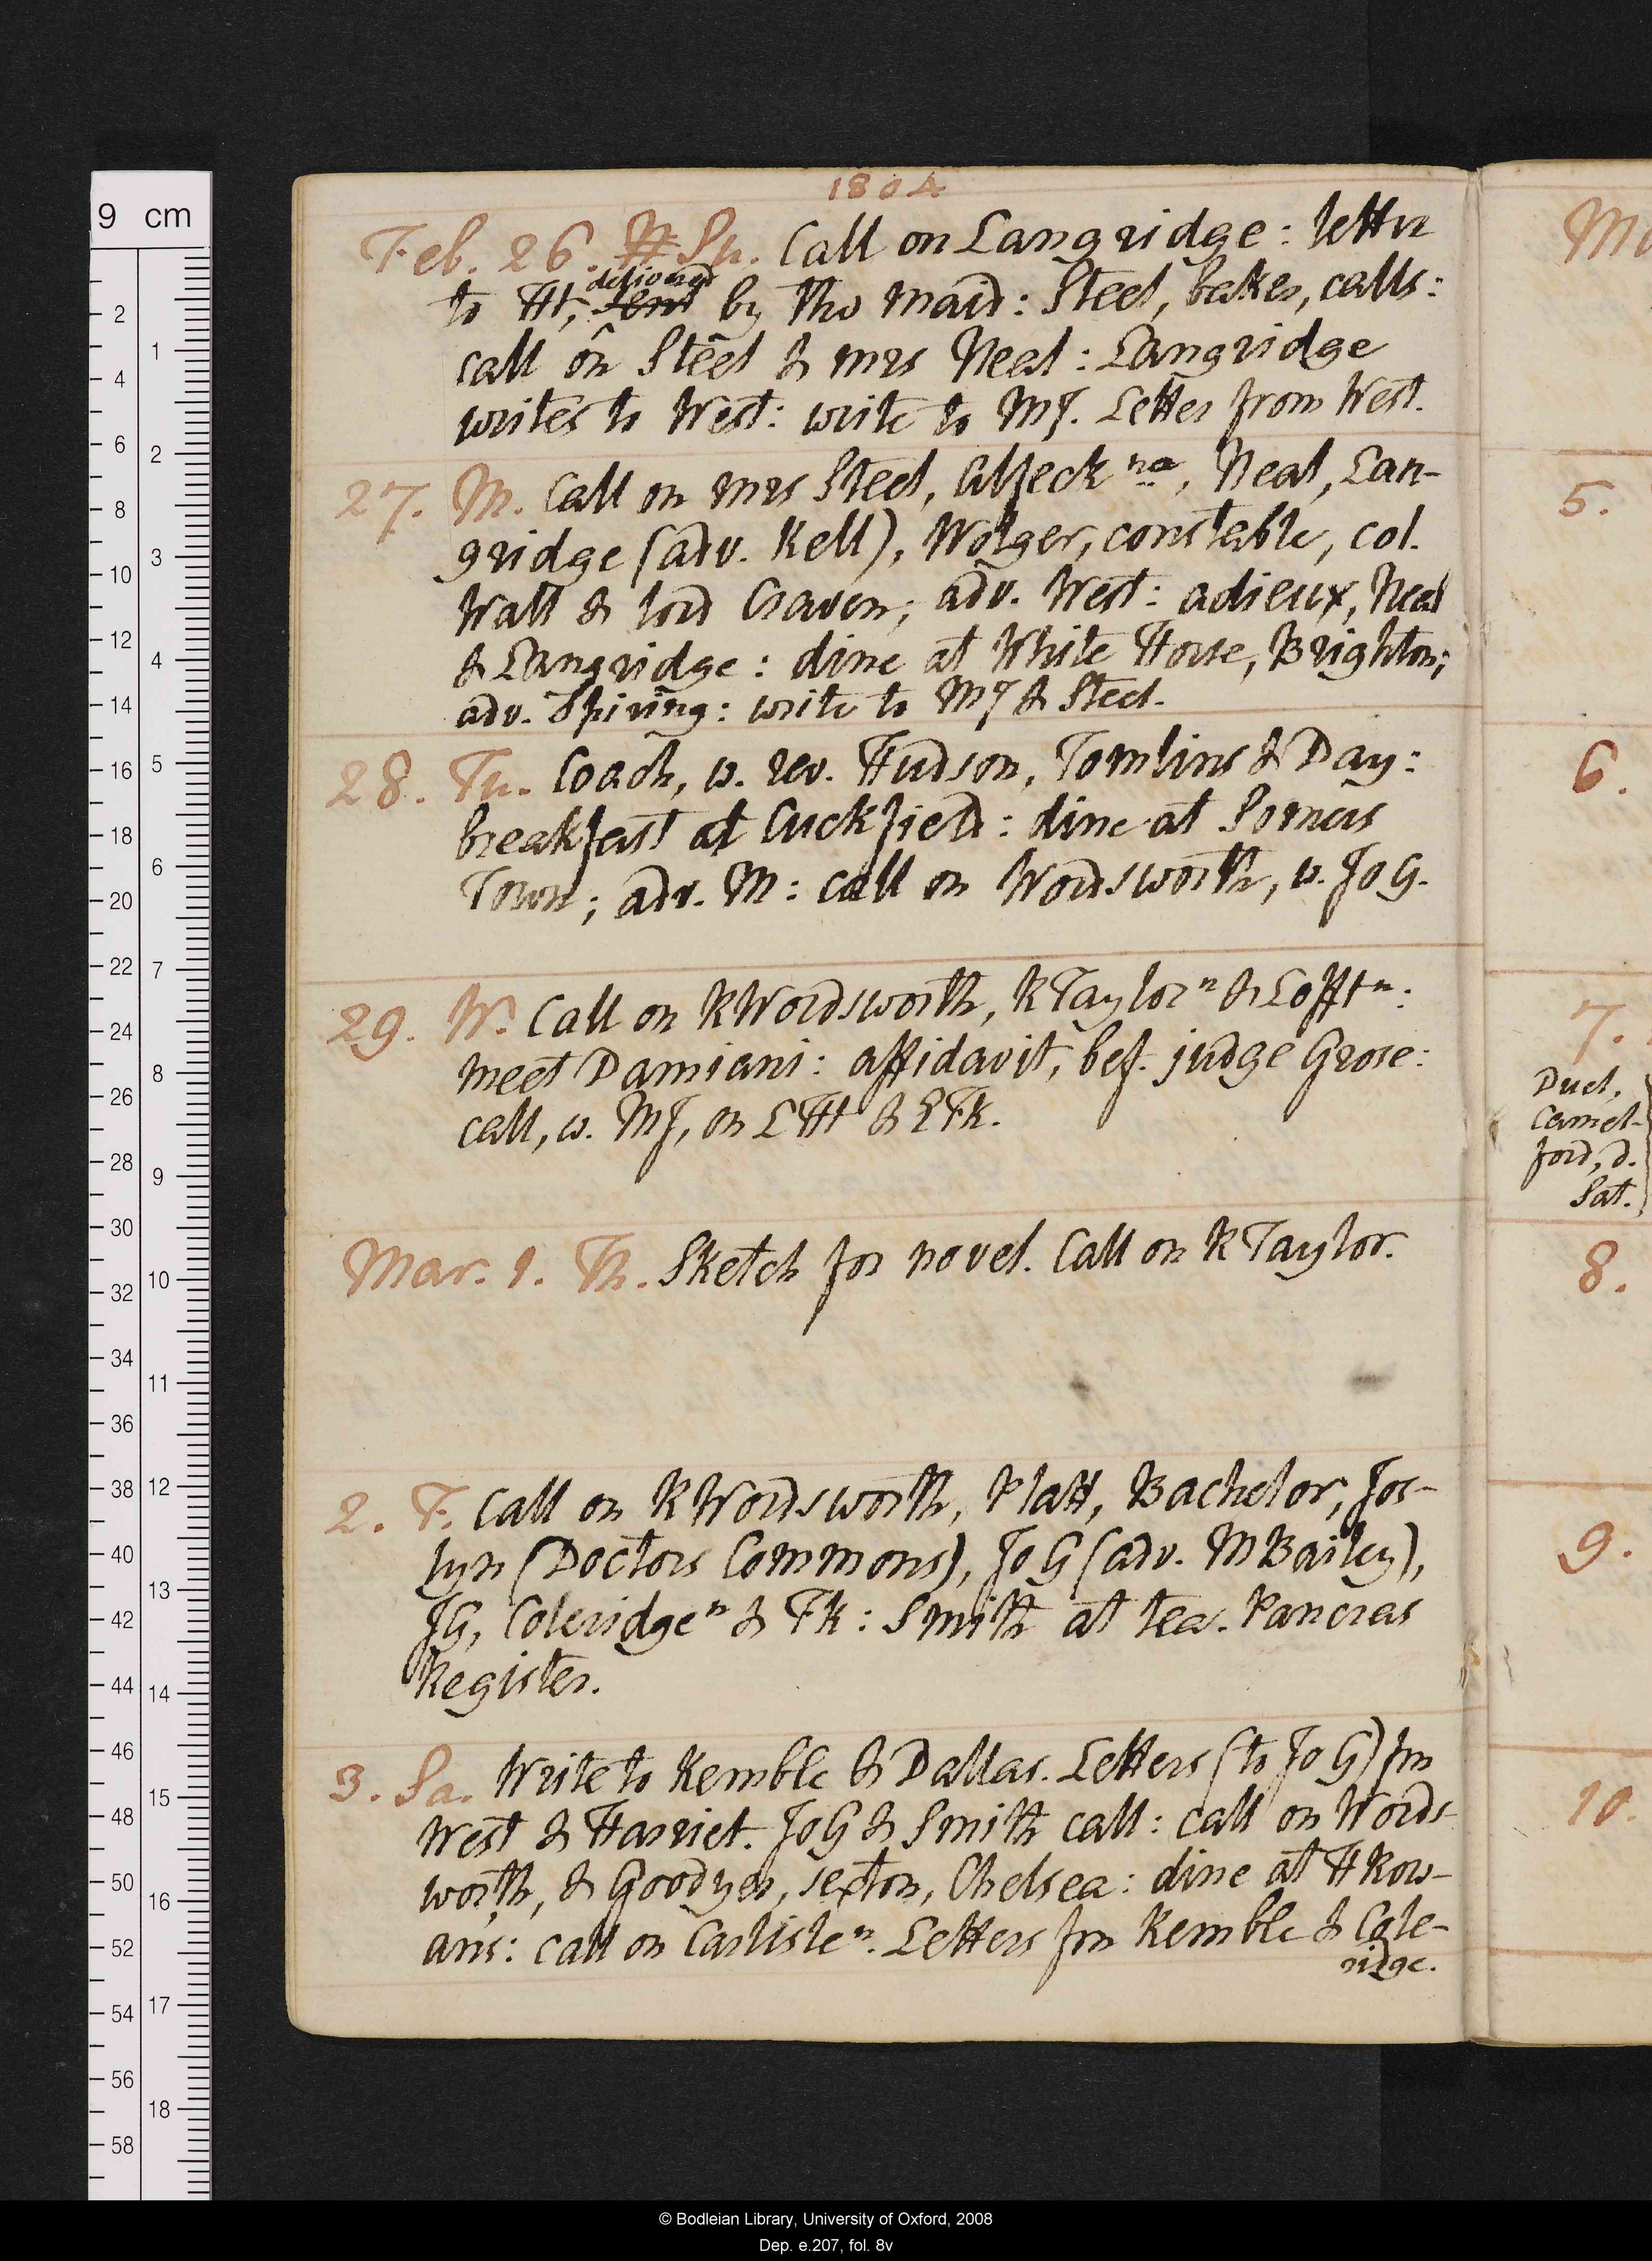 1804
Feb. 26. Su. Call on Langridge: letter
delivered
to Ht, sent by the maid: Steel, baker, calls:
call on Steel & mrs Neal: Langridge
writes to West: write to MJ. Letter from West.
27. M. Call on mrs Steel, Affleck na, Neal, Lan-
gridge (adv. Kell), Wolger, constable, col.
Watt & lord Craven; adv. West: adieux, Neal
& Langridge: dine at White Horse, Brighton;
adv. Spiring: write to MJ & Steel.
28. Tu. Coach, w. rev. Hudson, Tomlins & Day:
breakfast at Cuckfield: dine at Somers
Town; adv. M: call on Wordsworth, w. Jo G.
29. W. Call on R Wordsworth, R Taylor n & Lofft n:
meet Damiani: affidavit, bef. judge Grose:
call, w. MJ, on L Ht & E Fk.
Mar. 1. Th. Sketch for novel. Call on R Taylor.
2. F. Call on R Wordsworth, Platt, Bachelor, Jos-
lyn (Doctors Commons), Jo G (adv. M Bailey),
JG, Coleridge n & Fk: Smith at tea. Pancras
Register.
3. Sa. Write to Kemble & Dallas. Letters (to Jo G) fm
West & Harriet. Jo G & Smith call: call on Words-
worth, & Goodyer, sexton, Chelsea: dine at H Row-
ans: call on Carlisle n. Letters fm Kemble & Cole-
ridge.
5.
6.
7.
Duel,
Camel-
ford, d.
Sat.
8.
9.
10.
9 cm
© Bodleian Library, University of Oxford, 2008
Dep. e.207, fol. 8v